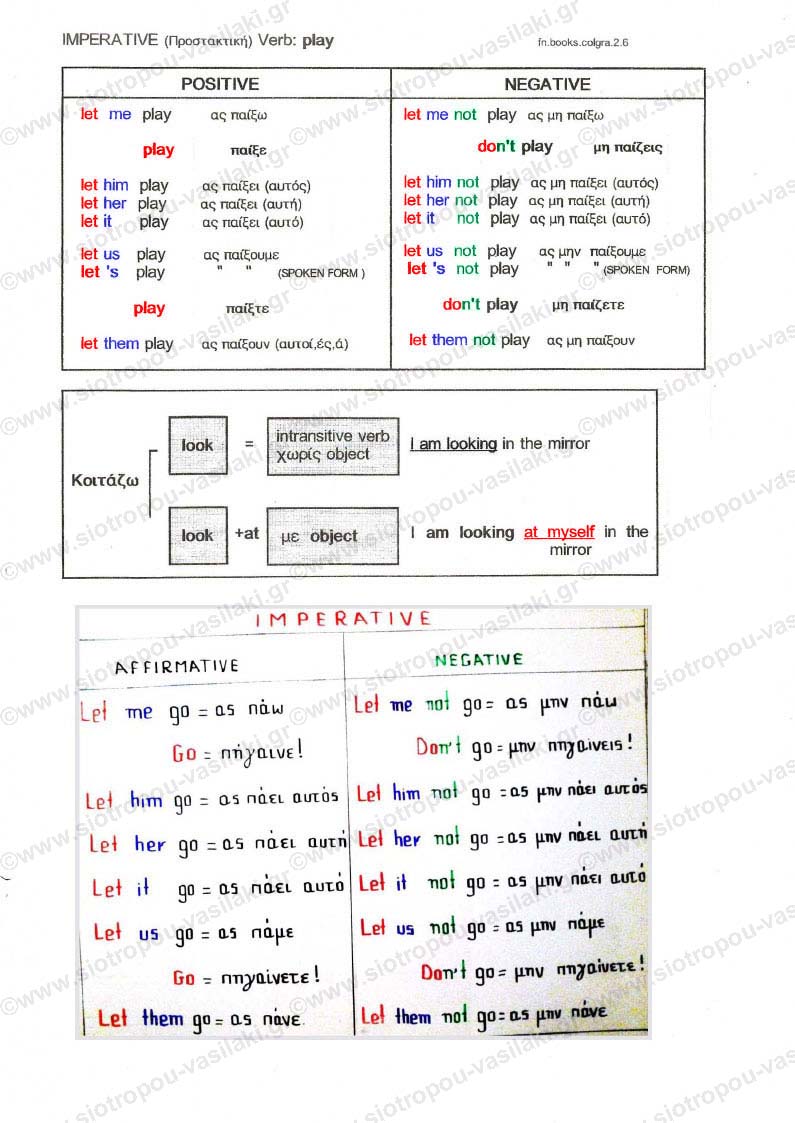 IMPERATIVE (Προστακτική) Verb: play
fn.books.colgra.2.6
POSITIVE
let me play ας παίξω
play παίξε
let him play ας παίξει (αυτός)
let her play ας παίξει (αυτή)
let it play ας παίξει (αυτό)
let us play ας παίξουμε
let 's play " " (SPOKEN FORM )
play παίξτε
let them play ας παίξουν (αυτοί,ές,ά)
NEGATIVE
let me not play ας μη παίξω
don't play μη παίζεις
let him not play ας μη παίξει (αυτός)
let her not play ας μη παίξει (αυτή)
let it not play ας μη παίξει (αυτό)
let us not play ας μην παίξουμε
let 's not play " " " (SPOKEN FORM)
don't play μη παίζετε
let them not play ας μη παίξουν
Κοιτάζω
look = intransitive verb
χωρίς object
I am looking in the mirror
look +at με object
I am looking at myself in the
mirror
IMPERATIVE
AFFIRMATIVE
Let me go = ας πάω
Go = πήγαινε!
Let him go = ας πάει αυτός
Let her go = ας πάει αυτή
Let it go = ας πάει αυτό
Let us go = ας πάμε
Go = πηγαίνετε!
Let them go = ας πάνε.
NEGATIVE
Let me not go = ας μην πάω
Don't go = μην πηγαίνεις!
Let him not go = ας μην πάει αυτός
Let her not go = ας μην πάει αυτή
Let it not go = ας μην πάει αυτό
Let us not go = ας μην πάμε
Don't go = μην πηγαίνετε!
Let them not go = ας μην πάνε
©www.siotropou-vasilaki.gr